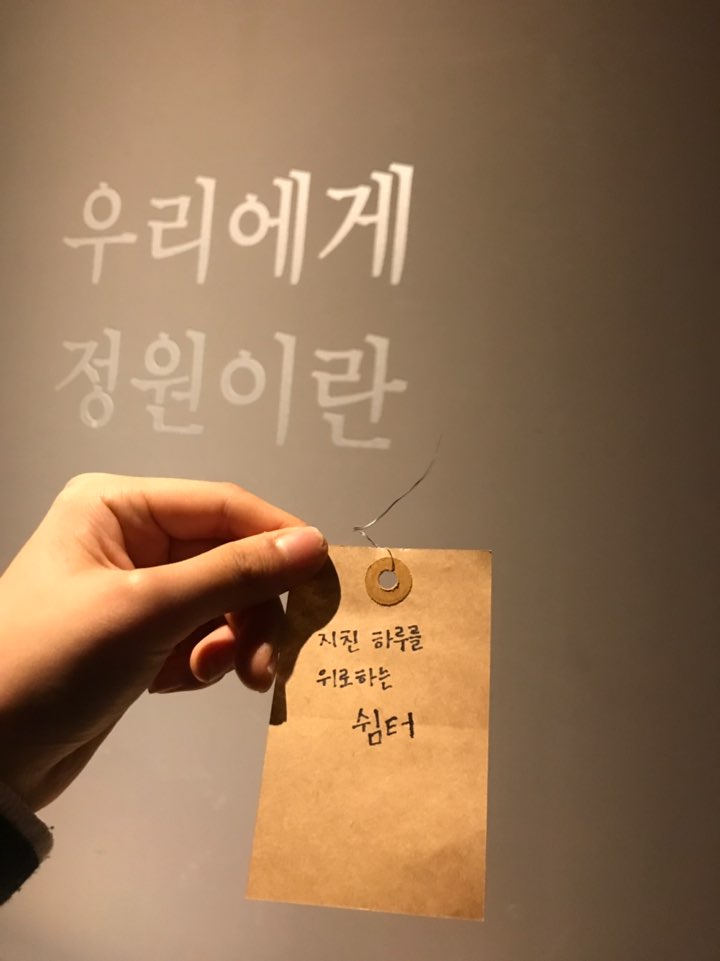 우리에게
정원이란
지친 하루를
위로하는
쉼터